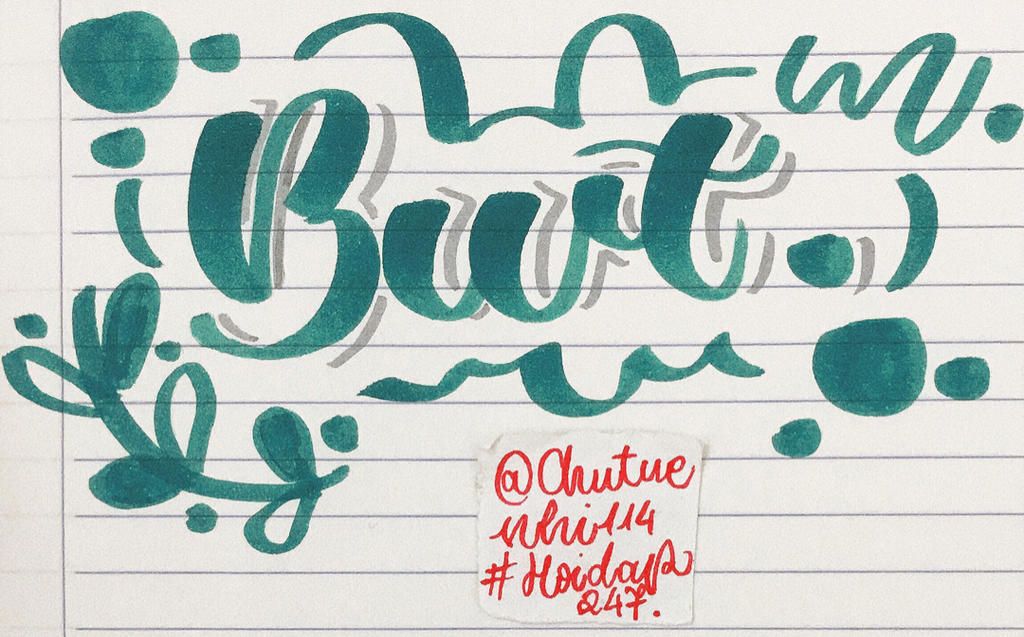 Bwt.
@Chutue
nhi114
#Hoidap
247.